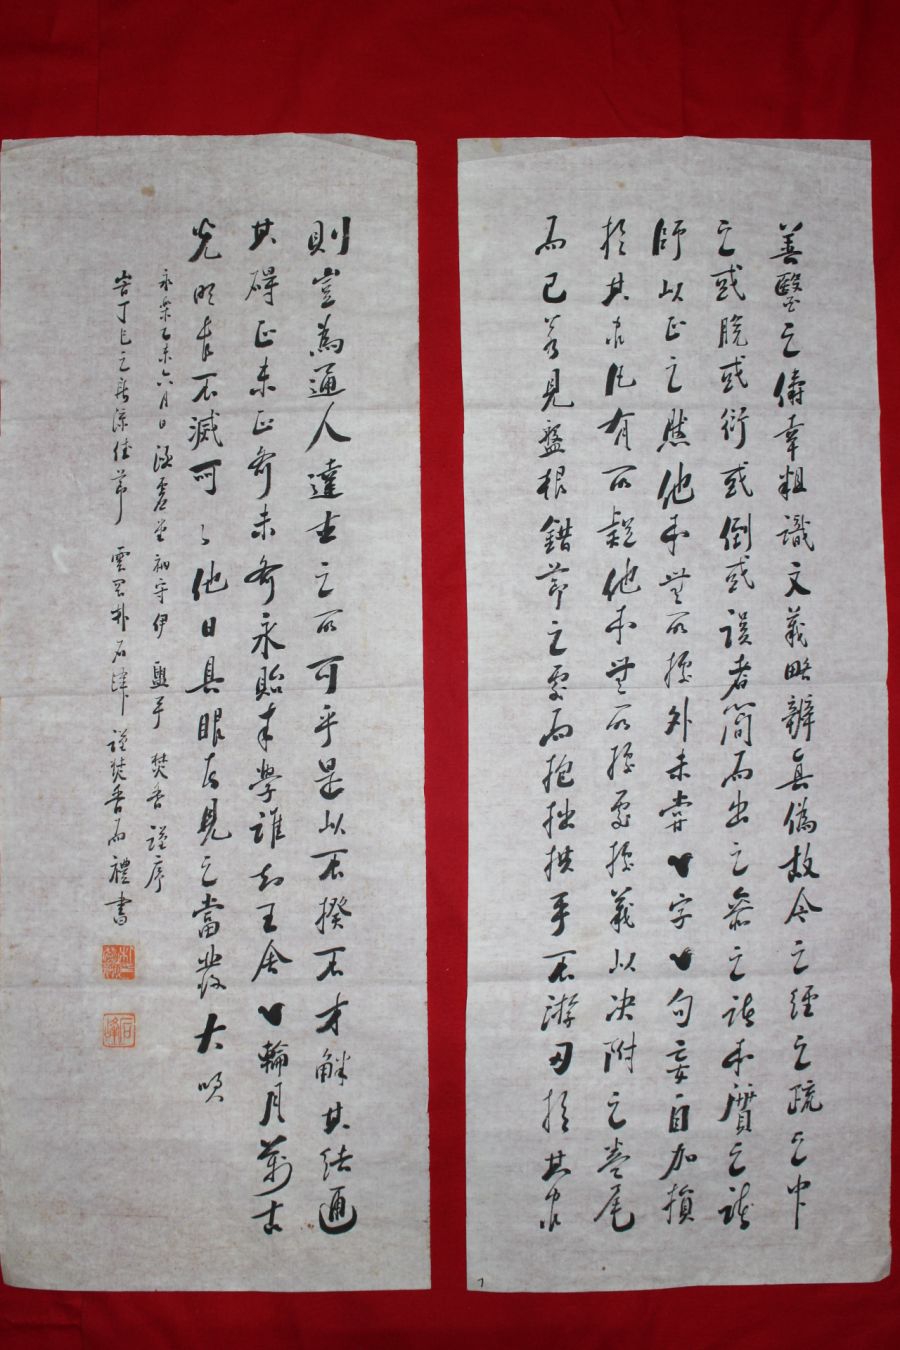 善醫之儔幸粗識文義略辨真偽故今之經之疏之中
之或脫或衍或倒或誤者簡而出之參之諸本質之諸
師以正之然他本無所據外未嘗一字一句妄自加損
於其間凡有所疑他本無所據處據義以決附之卷尾
而已若見盤根錯節之處而抱拙拱手不游刃於其間
則豈為通人達士之所可乎是以不揆不才解其結通
其碍正未正齊未齊永貽來學誰知王舍一輪月萬古
光明長不滅呵々他日具眼者見之當發大咲
永樂乙未六月日涵虛堂衲守伊 盥手 焚香謹序
峕丁巳之新涼佳節 雲岩朴石峰 謹焚香而禮書
石峰